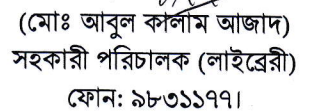 (মোঃ আবুল কালাম আজাদ)
সহকারী পরিচালক (লাইব্রেরী)
ফোন: ৯৮৩১১৭৭।